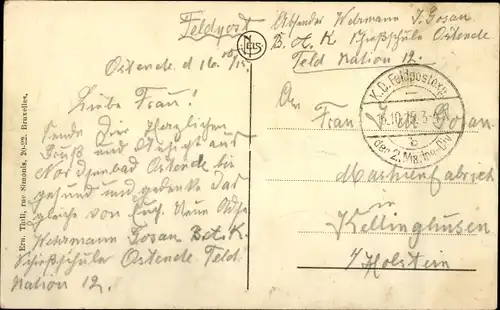 Feldpost
Absender Wehrmann J. Gosan
B. A. K. Schießschule Ostende
Feld Nation 12.
NELS
Ostende d 16.10/15.
Liebe Frau!
Sende Dir herzlichen
Gruß und aus
Nordseebad Ostende bin
gesund und gedenke das
gleiche von Euch. Neue Adr.
Wehrmann Gosan B.A.K.
Schießschule Ostende Feld
Nation 12.
Ern. Thill, rue Simonis, 20-22, Bruxelles.
K.D. Feldpostexp.
16.10.15. 3-
b
der 2. Mar. Inf. Div.
An
Frau Gosan
Maschienfabrick
in
Kellinghusen
i/ Holstein